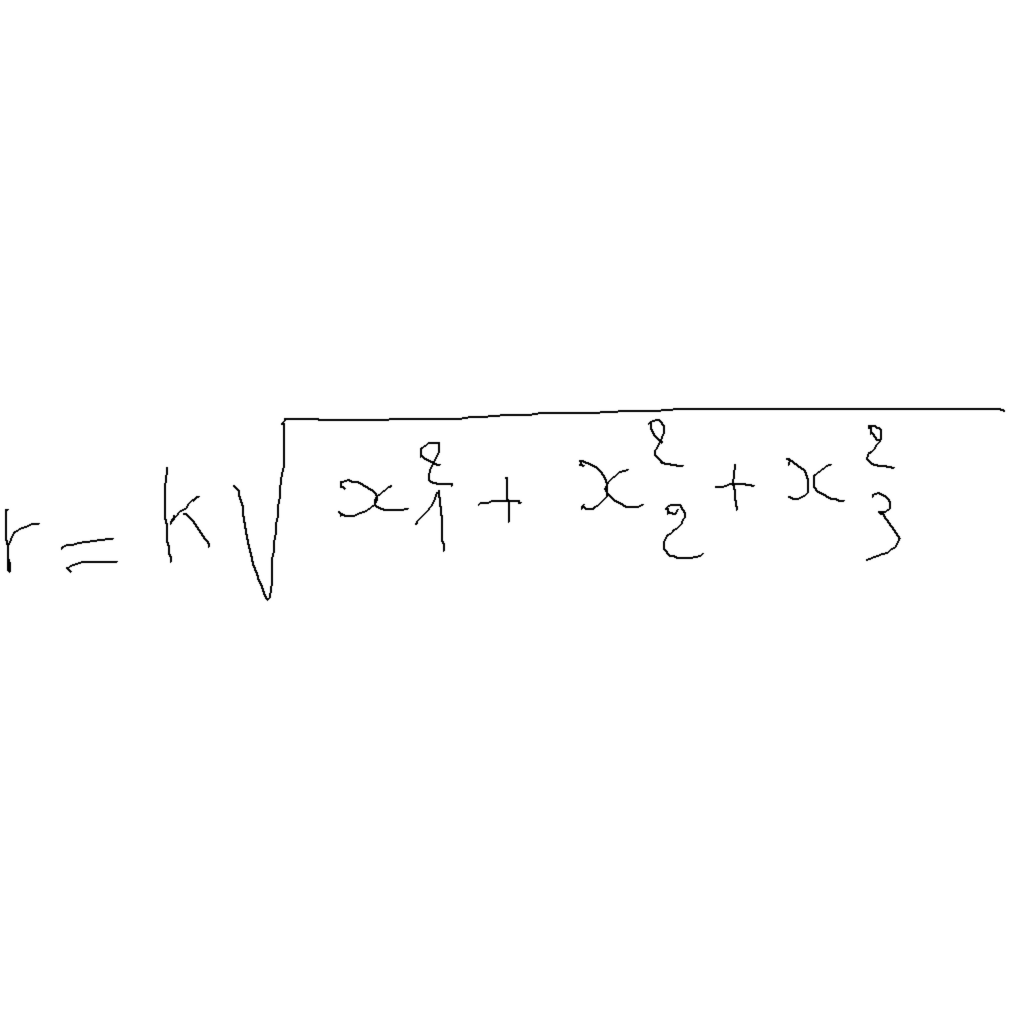 r = k√(x₁² + x₂² + x₃²)